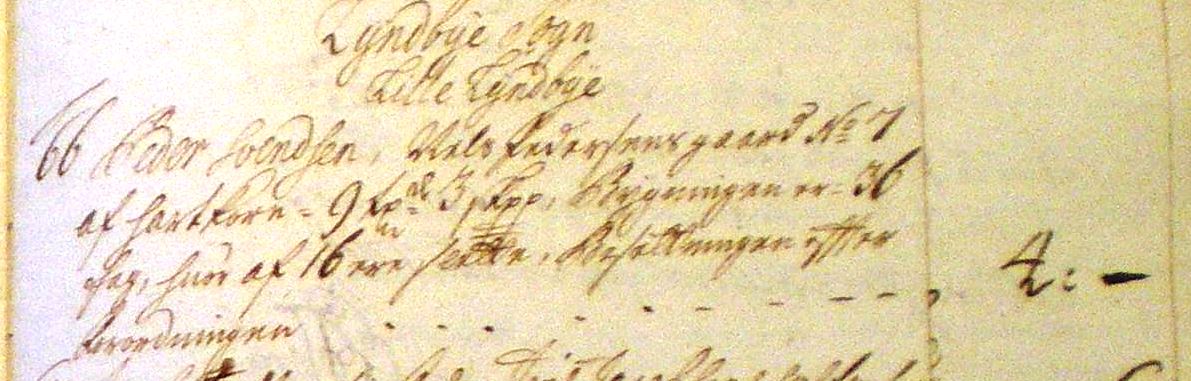 Lyndbÿe Sogn
Lille Lyndbÿe
66 Peder Svendsen, Niels Pedersens gaard No 7
af Hartkorn = 9 3 Skp, Bÿgningen er = 36
fag, hvor af 16 ere slette, Besættningen efter
forordningen - - - - - - - - - 4: -